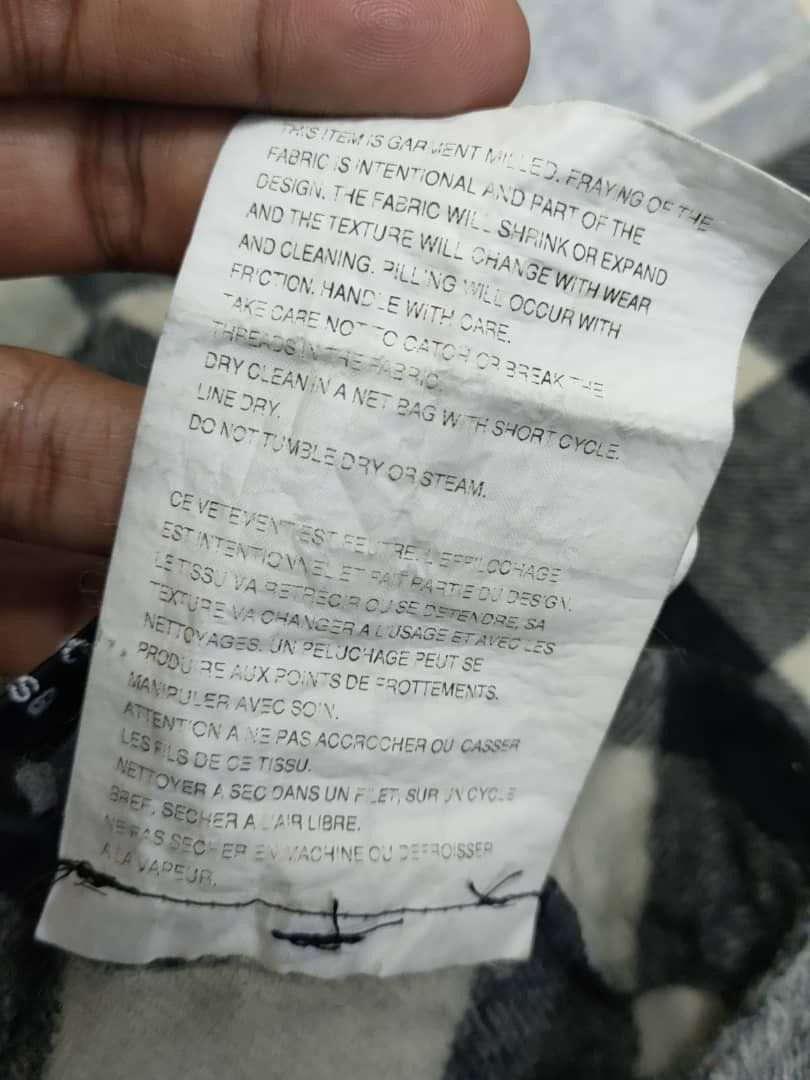 THIS ITEM IS GARMENT MILLED. FRAYING OF THE
FABRIC IS INTENTIONAL AND PART OF THE
DESIGN. THE FABRIC WILL SHRINK OR EXPAND
AND THE TEXTURE WILL CHANGE WITH WEAR
AND CLEANING. PILLING WILL OCCUR WITH
FRICTION. HANDLE WITH CARE.
TAKE CARE NOT TO CATCH OR BREAK THE
THREADS IN THE FABRIC.
DRY CLEAN IN A NET BAG WITH SHORT CYCLE.
LINE DRY.
DO NOT TUMBLE DRY OR STEAM.
CE VETEMENT EST FEUTRE. L'EFFILOCHAGE
EST INTENTIONNEL ET FAIT PARTIE DU DESIGN.
LE TISSU VA RETRECIR OU SE DETENDRE, SA
TEXTURE VA CHANGER A L'USAGE ET AVEC LES
NETTOYAGES. UN PELUCHAGE PEUT SE
PRODUIRE AUX POINTS DE FROTTEMENTS.
MANIPULER AVEC SOIN.
ATTENTION A NE PAS ACCROCHER OU CASSER
LES FILS DE CE TISSU.
NETTOYER A SEC DANS UN FILET, SUR UN CYCLE
BREF, SECHER A L'AIR LIBRE.
NE PAS SECHER EN MACHINE OU DEFROISSER
A LA VAPEUR.